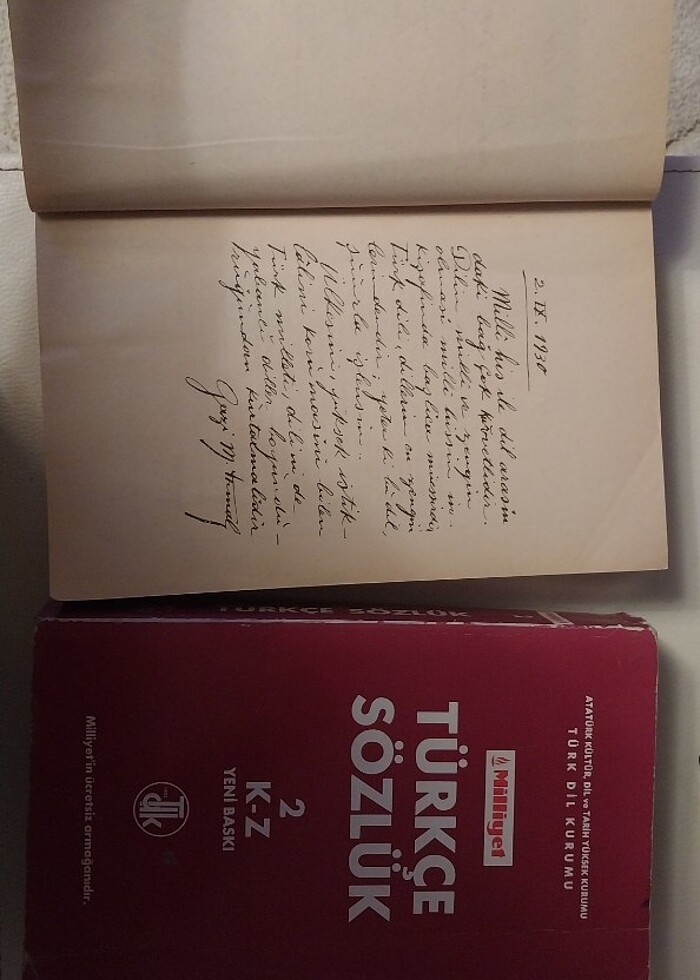 2. IX. 1930
Milli his ile dil arasın
daki bağ çok kuvvetlidir.
Dilin milli ve zengin
olması milli hissin in-
kişafında başlıca müessirdir.
Türk dili, dillerin en zengin
lerindendir; yeter ki bu dil,
şuurla işlensin..
Ülkesini, yüksek istik-
lâlini korumasını bilen
Türk milleti, dilini de
yabancı diller boyundu-
ruğundan kurtarmalıdır.
Gazi M. Kemal
TÜRKÇE SÖZLÜK
ATATÜRK KÜLTÜR, DİL ve TARİH YÜKSEK KURUMU
TÜRK DİL KURUMU
Milliyet
TÜRKÇE
SÖZLÜK
2
K-Z
YENİ BASKI
TDK
Milliyet'in ücretsiz armağanıdır.